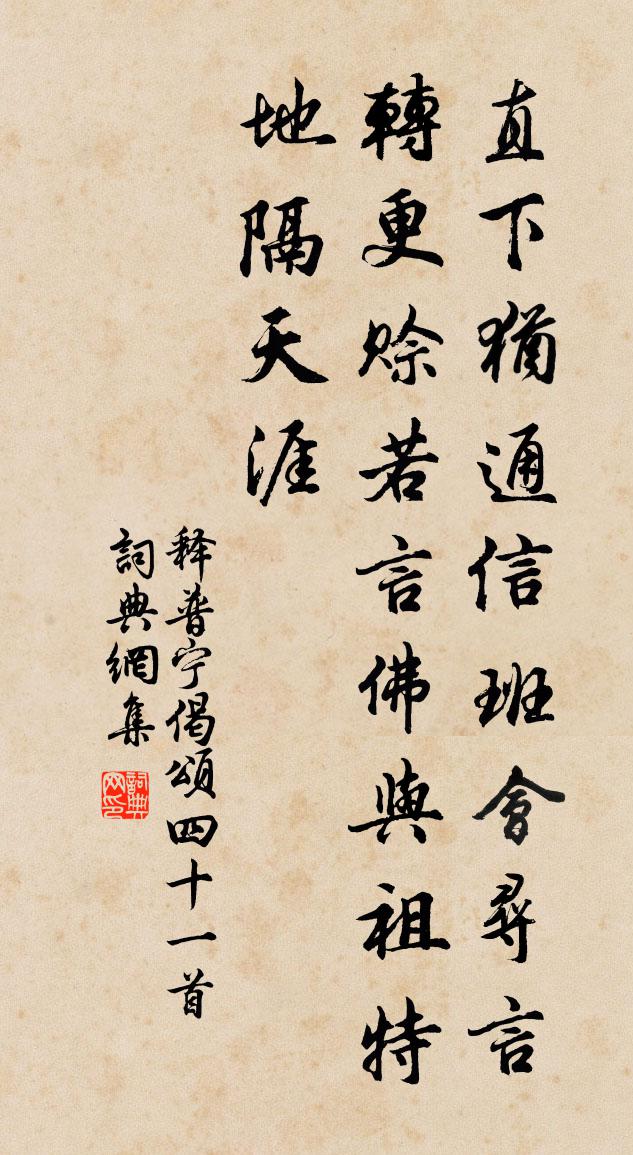 直下猶通信班會尋言
轉更賒若言佛與祖特
地隔天涯
释普宁偈頌四十一首
詞典網集
詞典网印